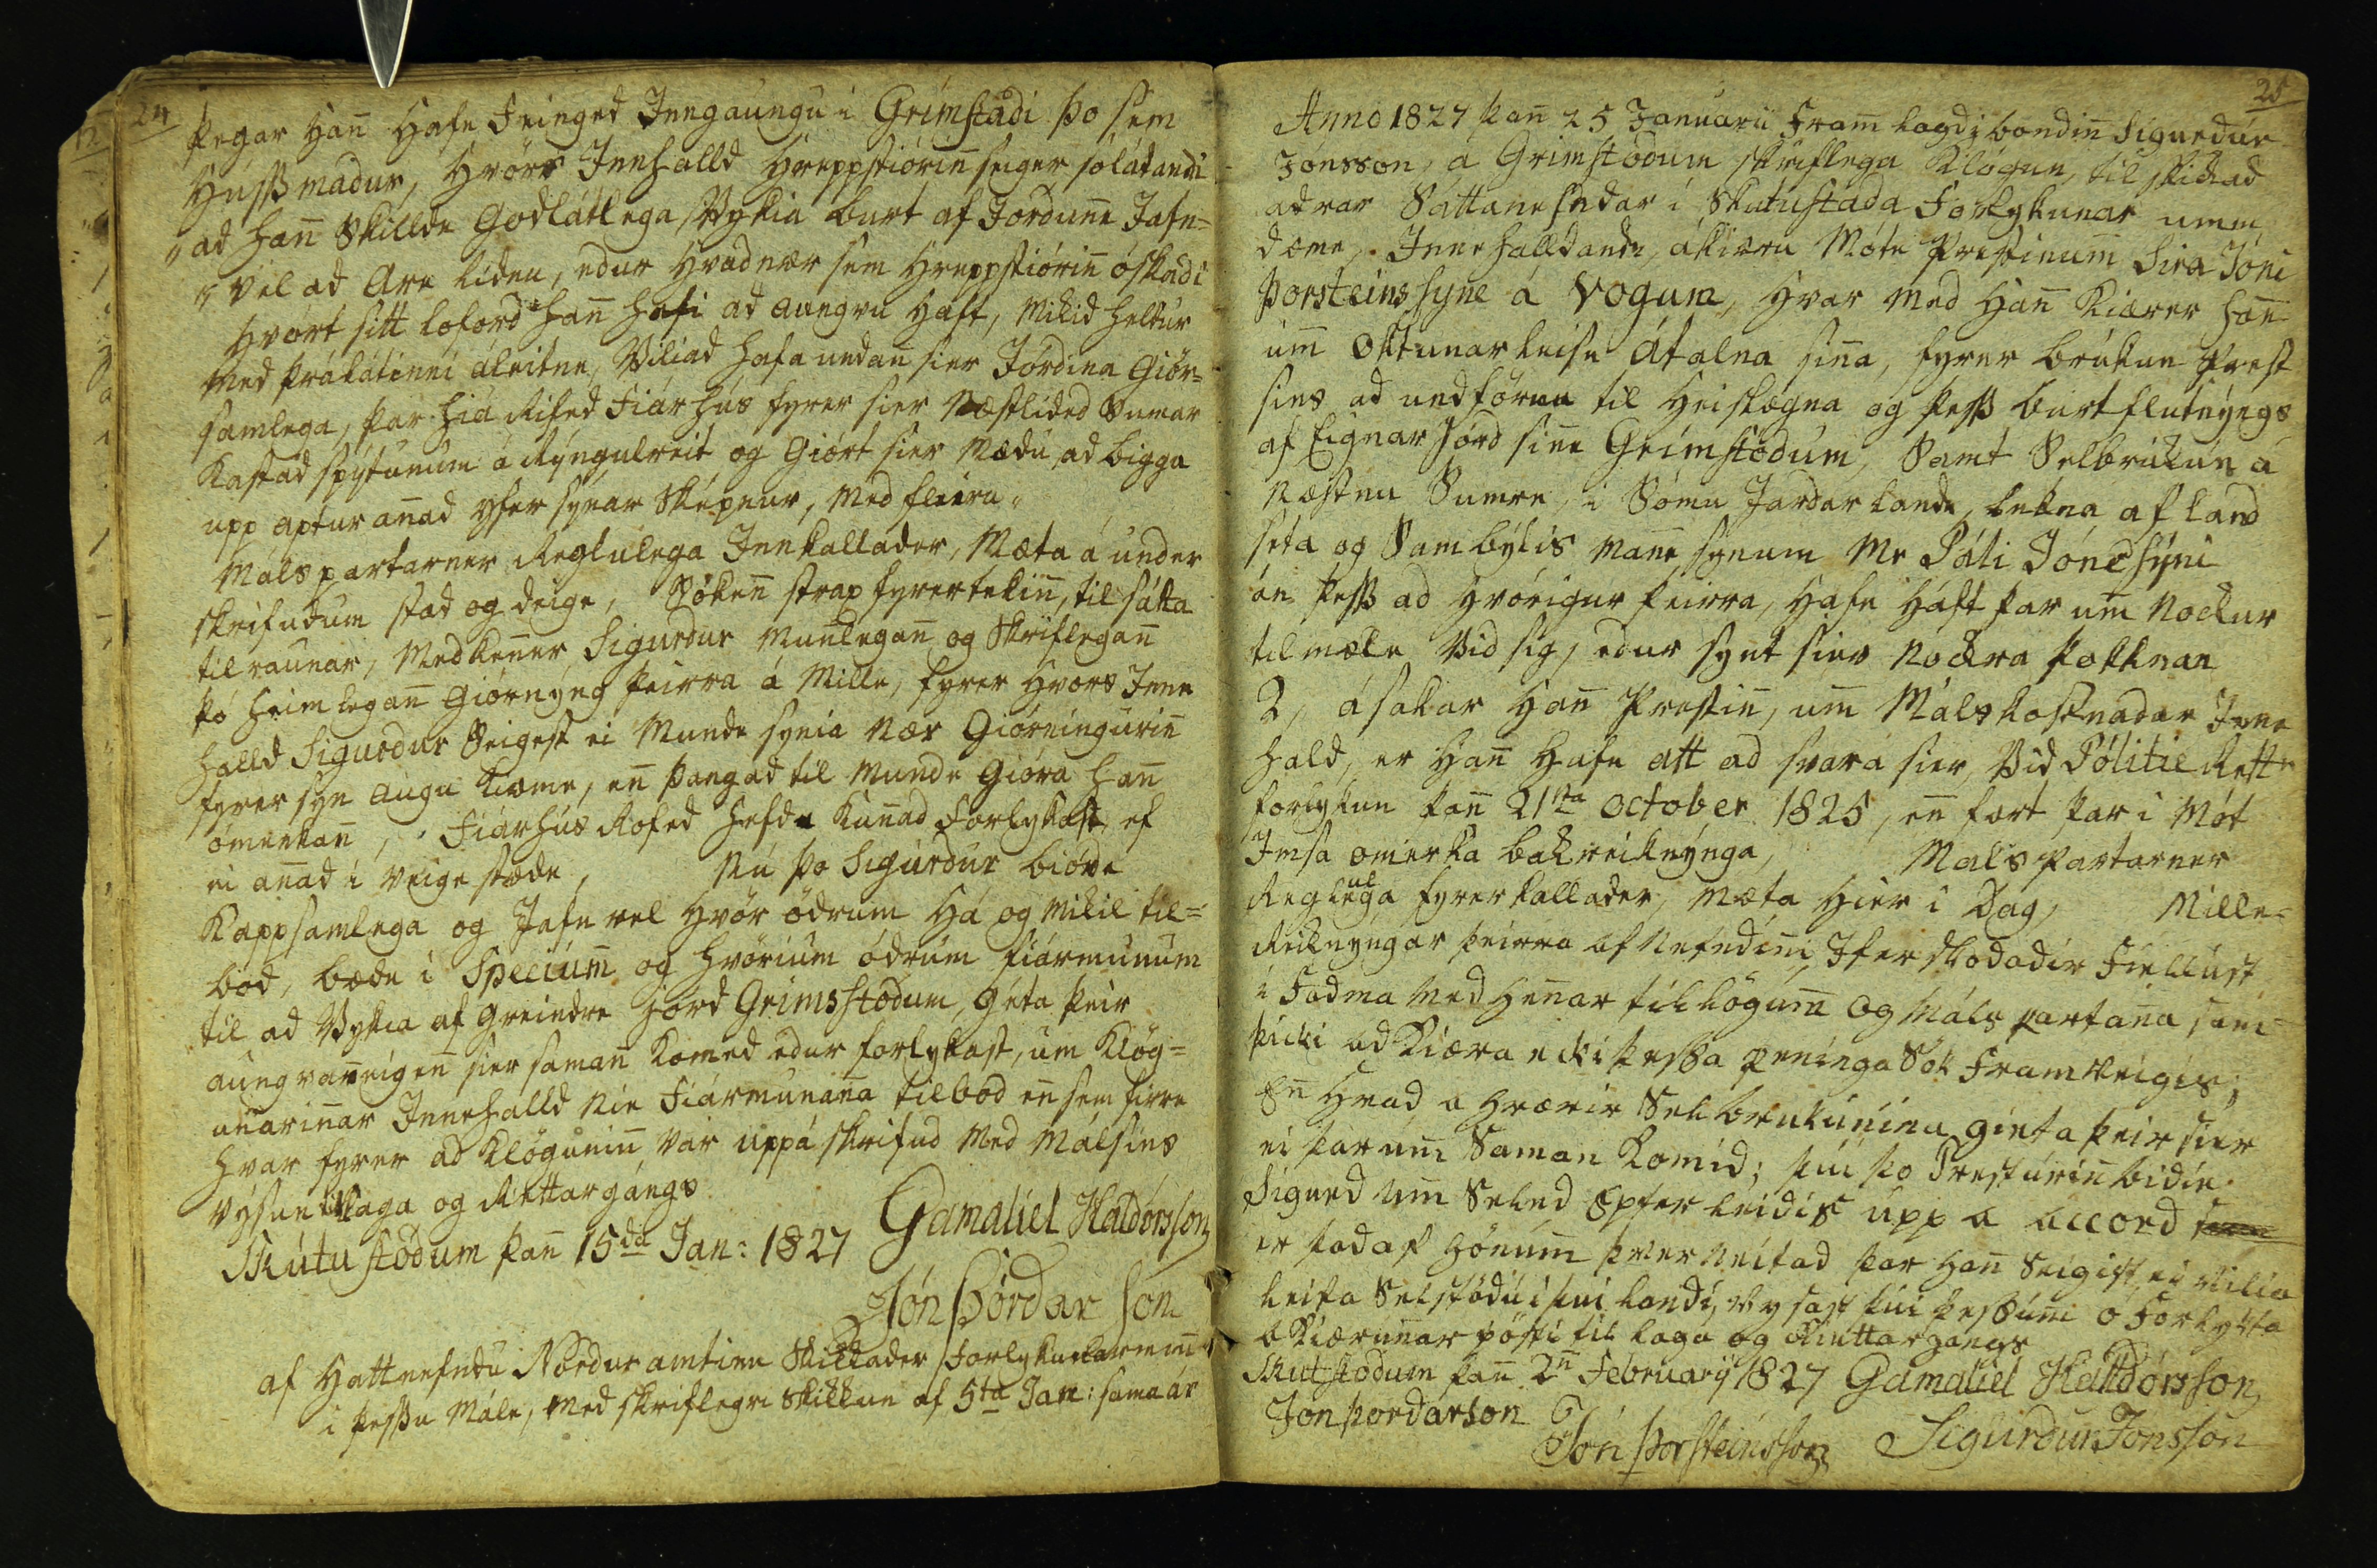 24
þegar han̄ hafe Feinged Inngaungu i Grimstadi þo sem
Hússmadur, hvörs Innhalld Hreppstiórin seiger sólátandi
„ad han̄ Skillde Godlátlega Vykia burt af Jordun̄e Jafn=
„vel ad Are lidnu, edur hvad nær sem Hreppstiórin̄ óskadi
hvört sitt loford han̄ hafi ad aungvu haft, mikid heldur
med þrálátinni áleitne, Viliad hafa undan̄ sier Jordina Giör=
samlega, þar hiá Rifed Fiárhús fyrer sier Næstlided Sumar
Kastad spÿtunum á Ryngulreit og Giört sier Mædu, ad bigga
upp aptur an̄ad yfer sÿnar Skepnur, med fleira.
Málspartarner Reglulega Innkallader, Mæta á under
skrifudum stad og deige, Söken̄ strax fyrertekin̄, til sátta
tilraunar, Medkenner Sigurdur Mun̄legan̄ og Skriflegan̄
þó heimlegan̄ Giörnÿng þeirra á Mille, fyrer hvors Inne
halld Sigurdur Seigest ei Munde synia Nær Giörningurin̄
fyrer syn augu kiæme, en̄ þangad til munde Gióra han̄
ómerkan̄, Fiárhús Rofed hefde kun̄ad forlykast, ef
ei an̄ad i veige stæde, Nú þo Sigurdur biöde
Kappsamlega og Jafnvel hvör ödrum há og mikil til=
bod, bæde i Specium̄ og hvörium ödrum fiármunum
til ad Vykia af greindre Jörd Grimsstödum, Geta þeir
aungvan̄eigen̄ sier saman̄ komed edur forlykast, um Klög=
unarin̄ar Innehalld Nie Fiármunan̄a tilbod en̄ sem firre
hvar fyrer ad Klögunin̄ var uppá skrifud med Málsins
Vÿsun til laga og Rettargángs
Skútustödum þan̄ 15da Jan: 1827 Gamaliel Haldorsson
Jón Þórdarson
af Hattnefndu Nordur amtinu Skikkader Forlykunarmenn
i þessu Mále, med skriflegri Skikkun af 5ta Jan: sama ár
25
Anno 1827 þan̄ 25 Januarii Fram lagdi bondin̄ Sigurdur
Jónsson, á Grimstödum skriflega Klögun, til skikkad
adrar Sáttanefndar i Skutustada Forlykunar umm
dæme, Innehalldande, ákiæru Móte Prestinum Sira Jóni
Þorsteinssyne á Vogum, hvar med han̄ Kiærer han̄
um̄ Öktunarleise átalna sin̄a, fyrer brúkun Prest
sins ad undförnu til Heiskögna og þess burtflutnÿngs
af Eignar Jörd sin̄e Grimstödum, Samt Selbrukun á
næstnu Sumre, i Sömu Jardar lande, lekna af land
seta og Sambylis man̄e sÿnum Mr Páli Jónssÿni
án þess ad hvörigur þeirra, hafe haft þar um̄ nockur
tilmæle Vid sig, edur synt sier nockra þokknan
2, ásakar han̄ Prestin̄, um̄ Málskostnadar Inne
hald, er han̄ hafe átt ad svara sier, Vid Politie Rett
forlykun þan̄ 21sta October 1825, en fært þar i Mót
Imsa omerka bakreiknÿnga, Málspartarner
Reglulega fyrerkallader, mæta hier i Dag, Mille=
Reiknyngar þeirra af nefndin̄i Iferskodadir Fiellust
i Fadma med hen̄ar tillögum̄ og Máls partan̄a sam=
þicki ad kiæra ecki þessa peninga Sök Framveigis;
En̄ hvad áhrærir Selbrukunina gieta þeir sier
ei þar um̄ Saman komid; þui þo Presturin̄ bidie
Sigurd um̄ Selud Epterleidis upp á accord
er það af hönum̄ þverneitad þar han̄ Seigist ei vilia
leifa Selstödu i þui landi, vysast þui þessum̄ o Forlykta
akiærun̄ar pósti til laga og Riettargangs
Skutstodum þan̄ 2n Februarÿ 1827 Gamaliel Halldorsson
Jon þordarson
Jón Þorsteinsson Sigurdur Jónsson